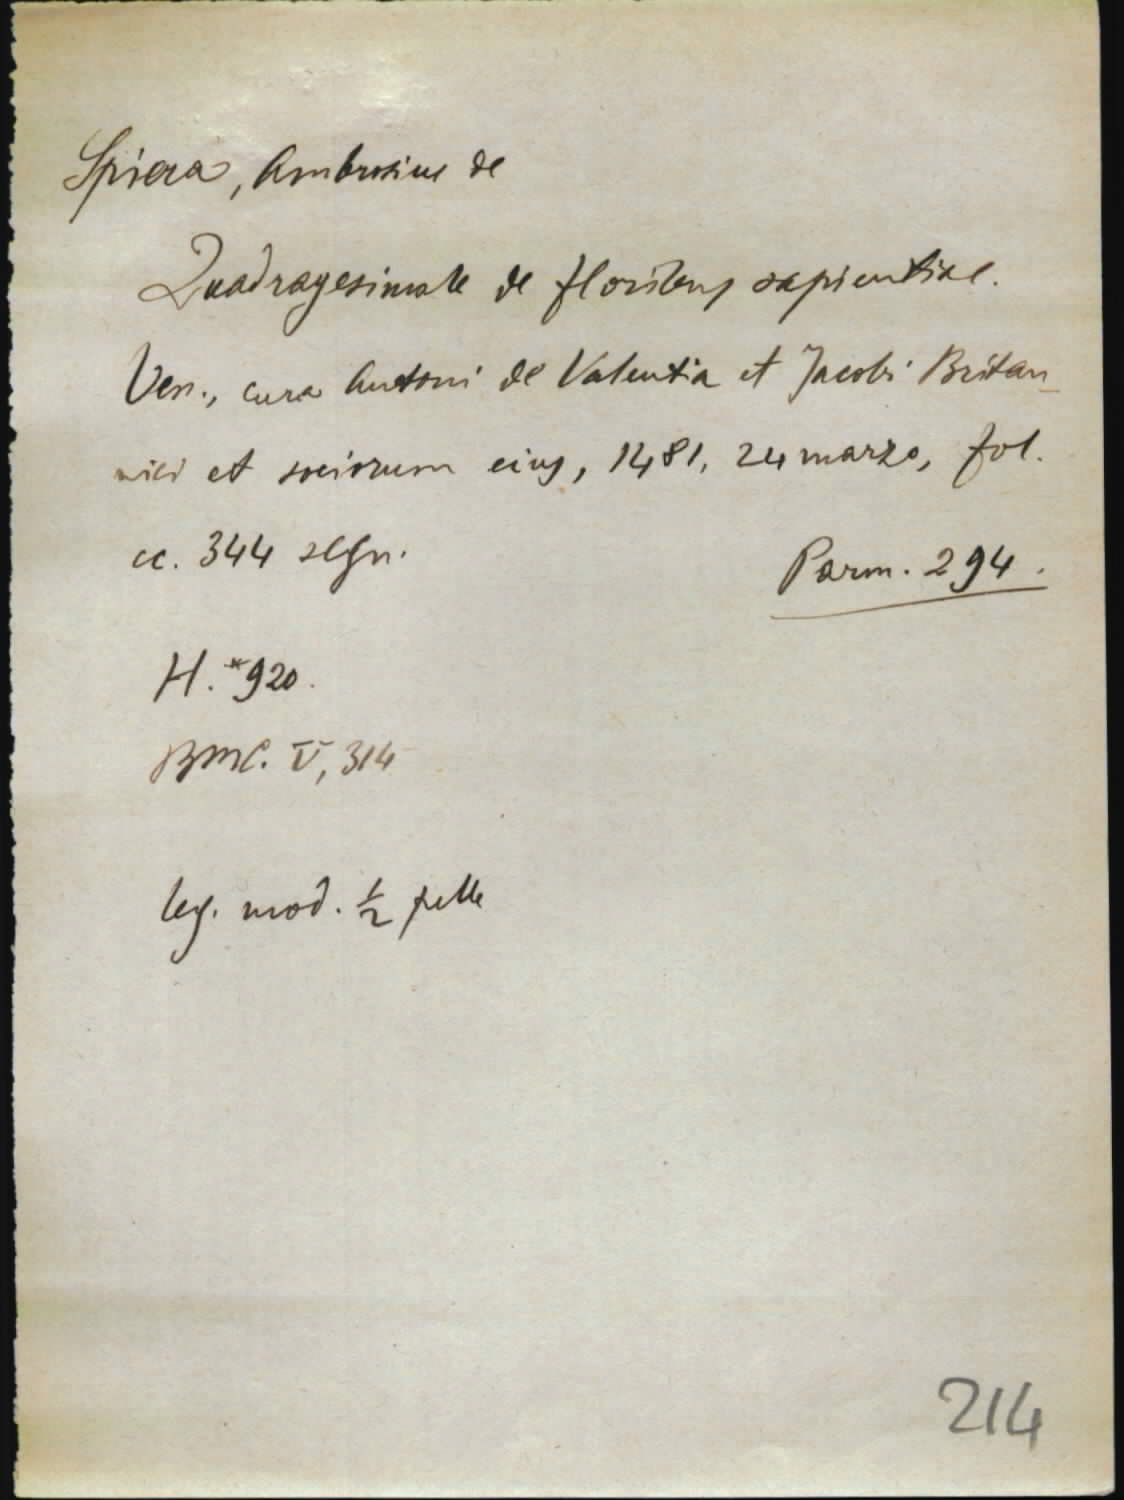 Spiera, Ambrosius de
Quadragesimale de floribus sapientiae.
Ven., cura Antoni de Valentia et Jacobi Britan_
nici et sociorum eius, 1481, 24 marzo, fol.
cc. 344 segn.
Parm. 294.
H. *920.
BMC. V, 314
leg. mod. ½ pelle
214